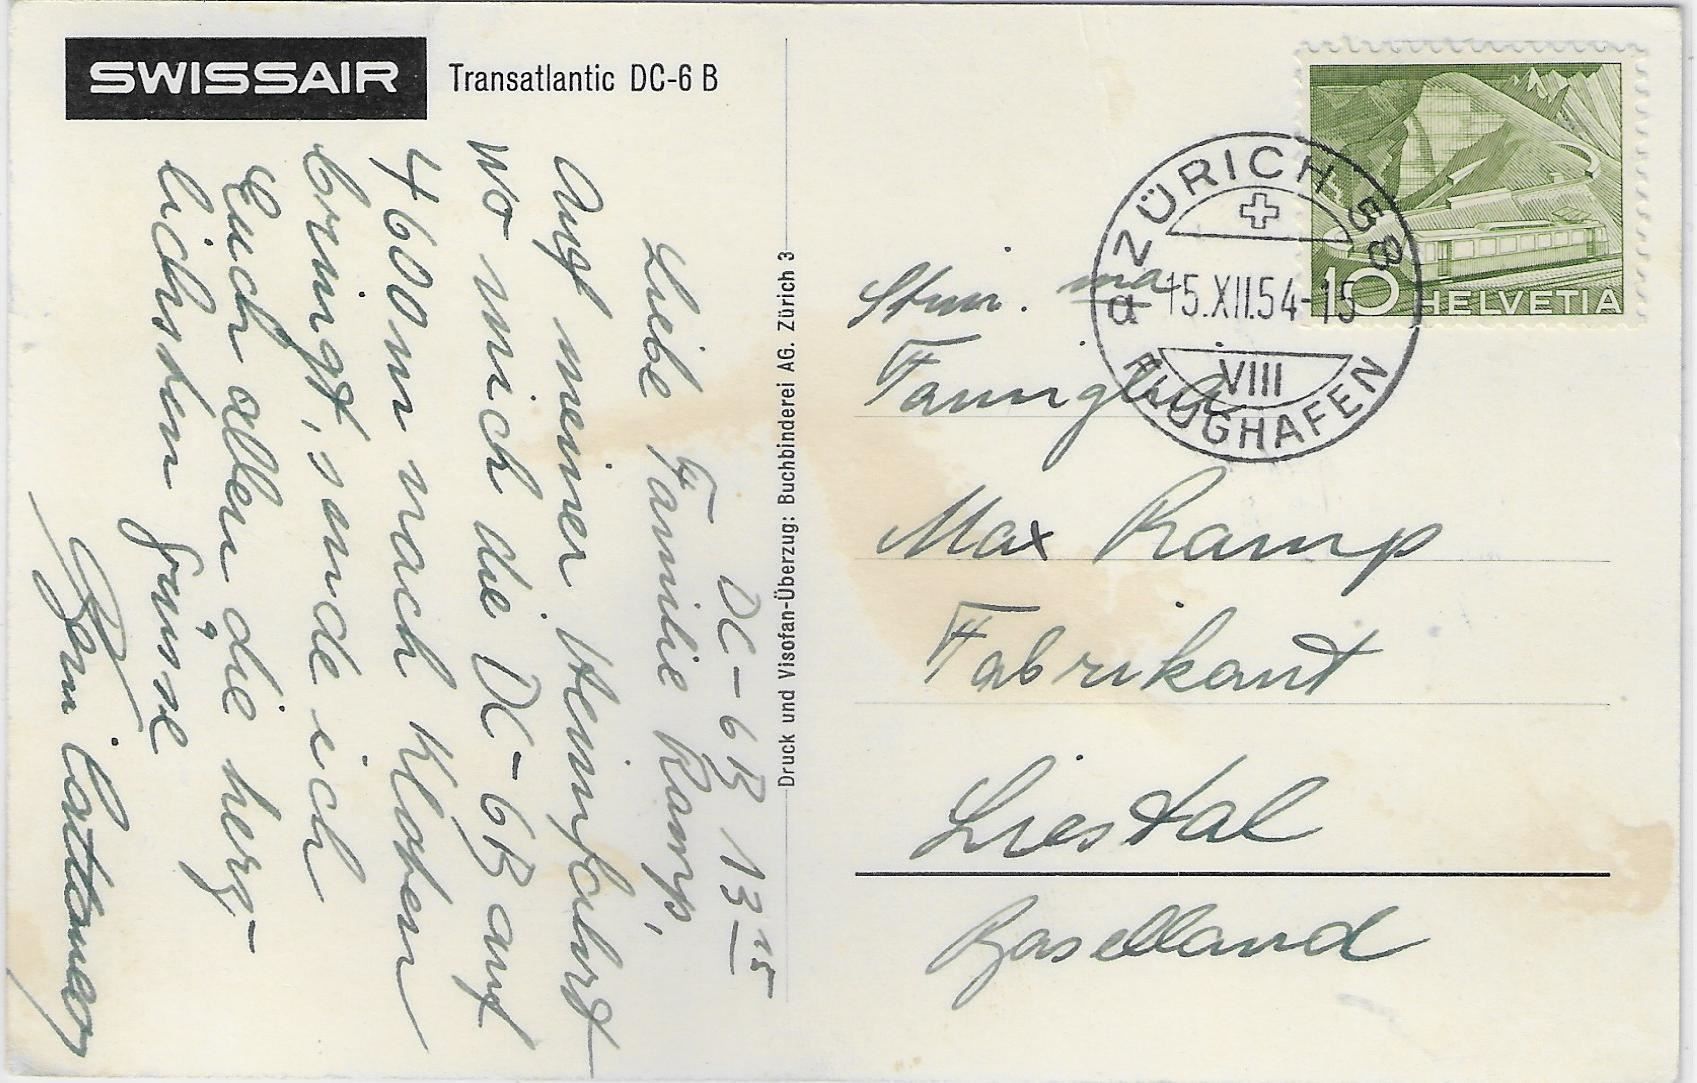 SWISSAIR Transatlantic DC-6 B
DC-6B 13 15
Liebe Familie Ramp,
Auf meiner Heimfahrt
wo mich die DC-6B auf
4600 m nach Kloten
bringt, sende ich
Euch allen die herz-
lichsten Grüsse
Druck und Visofan-Überzug: Buchbinderei AG. Zürich 3
ZÜRICH 58
15.XII.54-15
VIII
FLUGHAFEN
10 HELVETIA
Famiglia
Max Ramp
Fabrikant
Liestal
Baselland